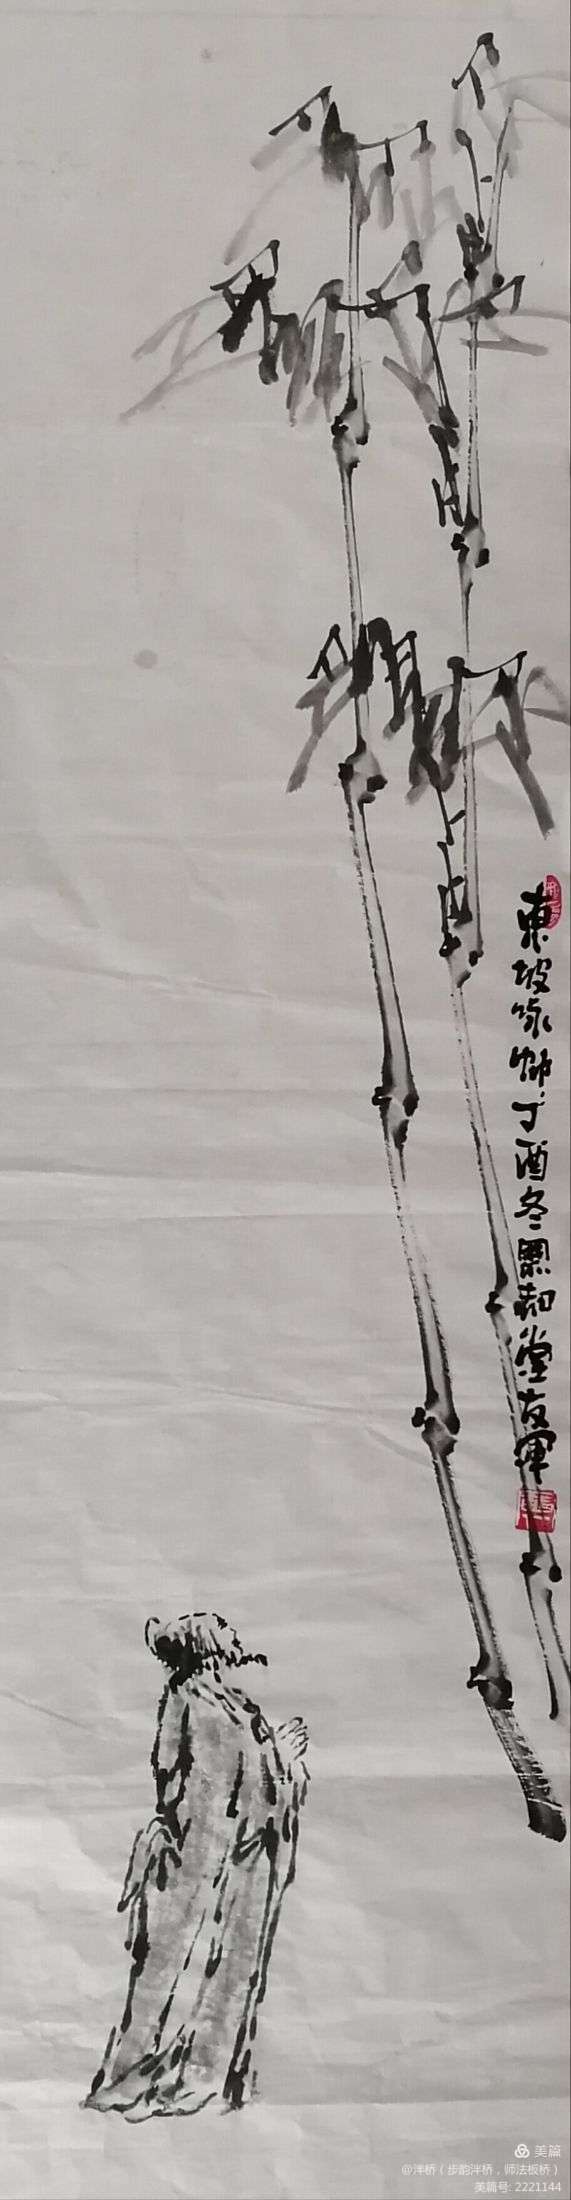 東坡詠师丁酉冬墨韵堂友軍
美篇
@泮桥（步韵泮桥，师法板桥）
美篇号: 2221144